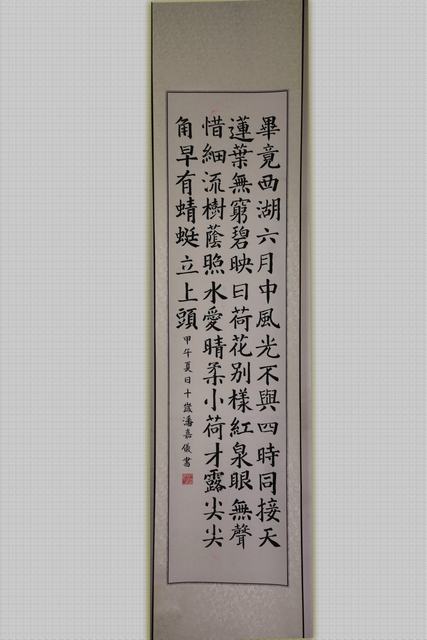 畢竟西湖六月中風光不與四時同接天
蓮葉無窮碧映日荷花别樣紅泉眼無聲
惜細流樹蔭照水愛晴柔小荷才露尖尖
角早有蜻蜓立上頭 甲午夏日十歲潘嘉儀書